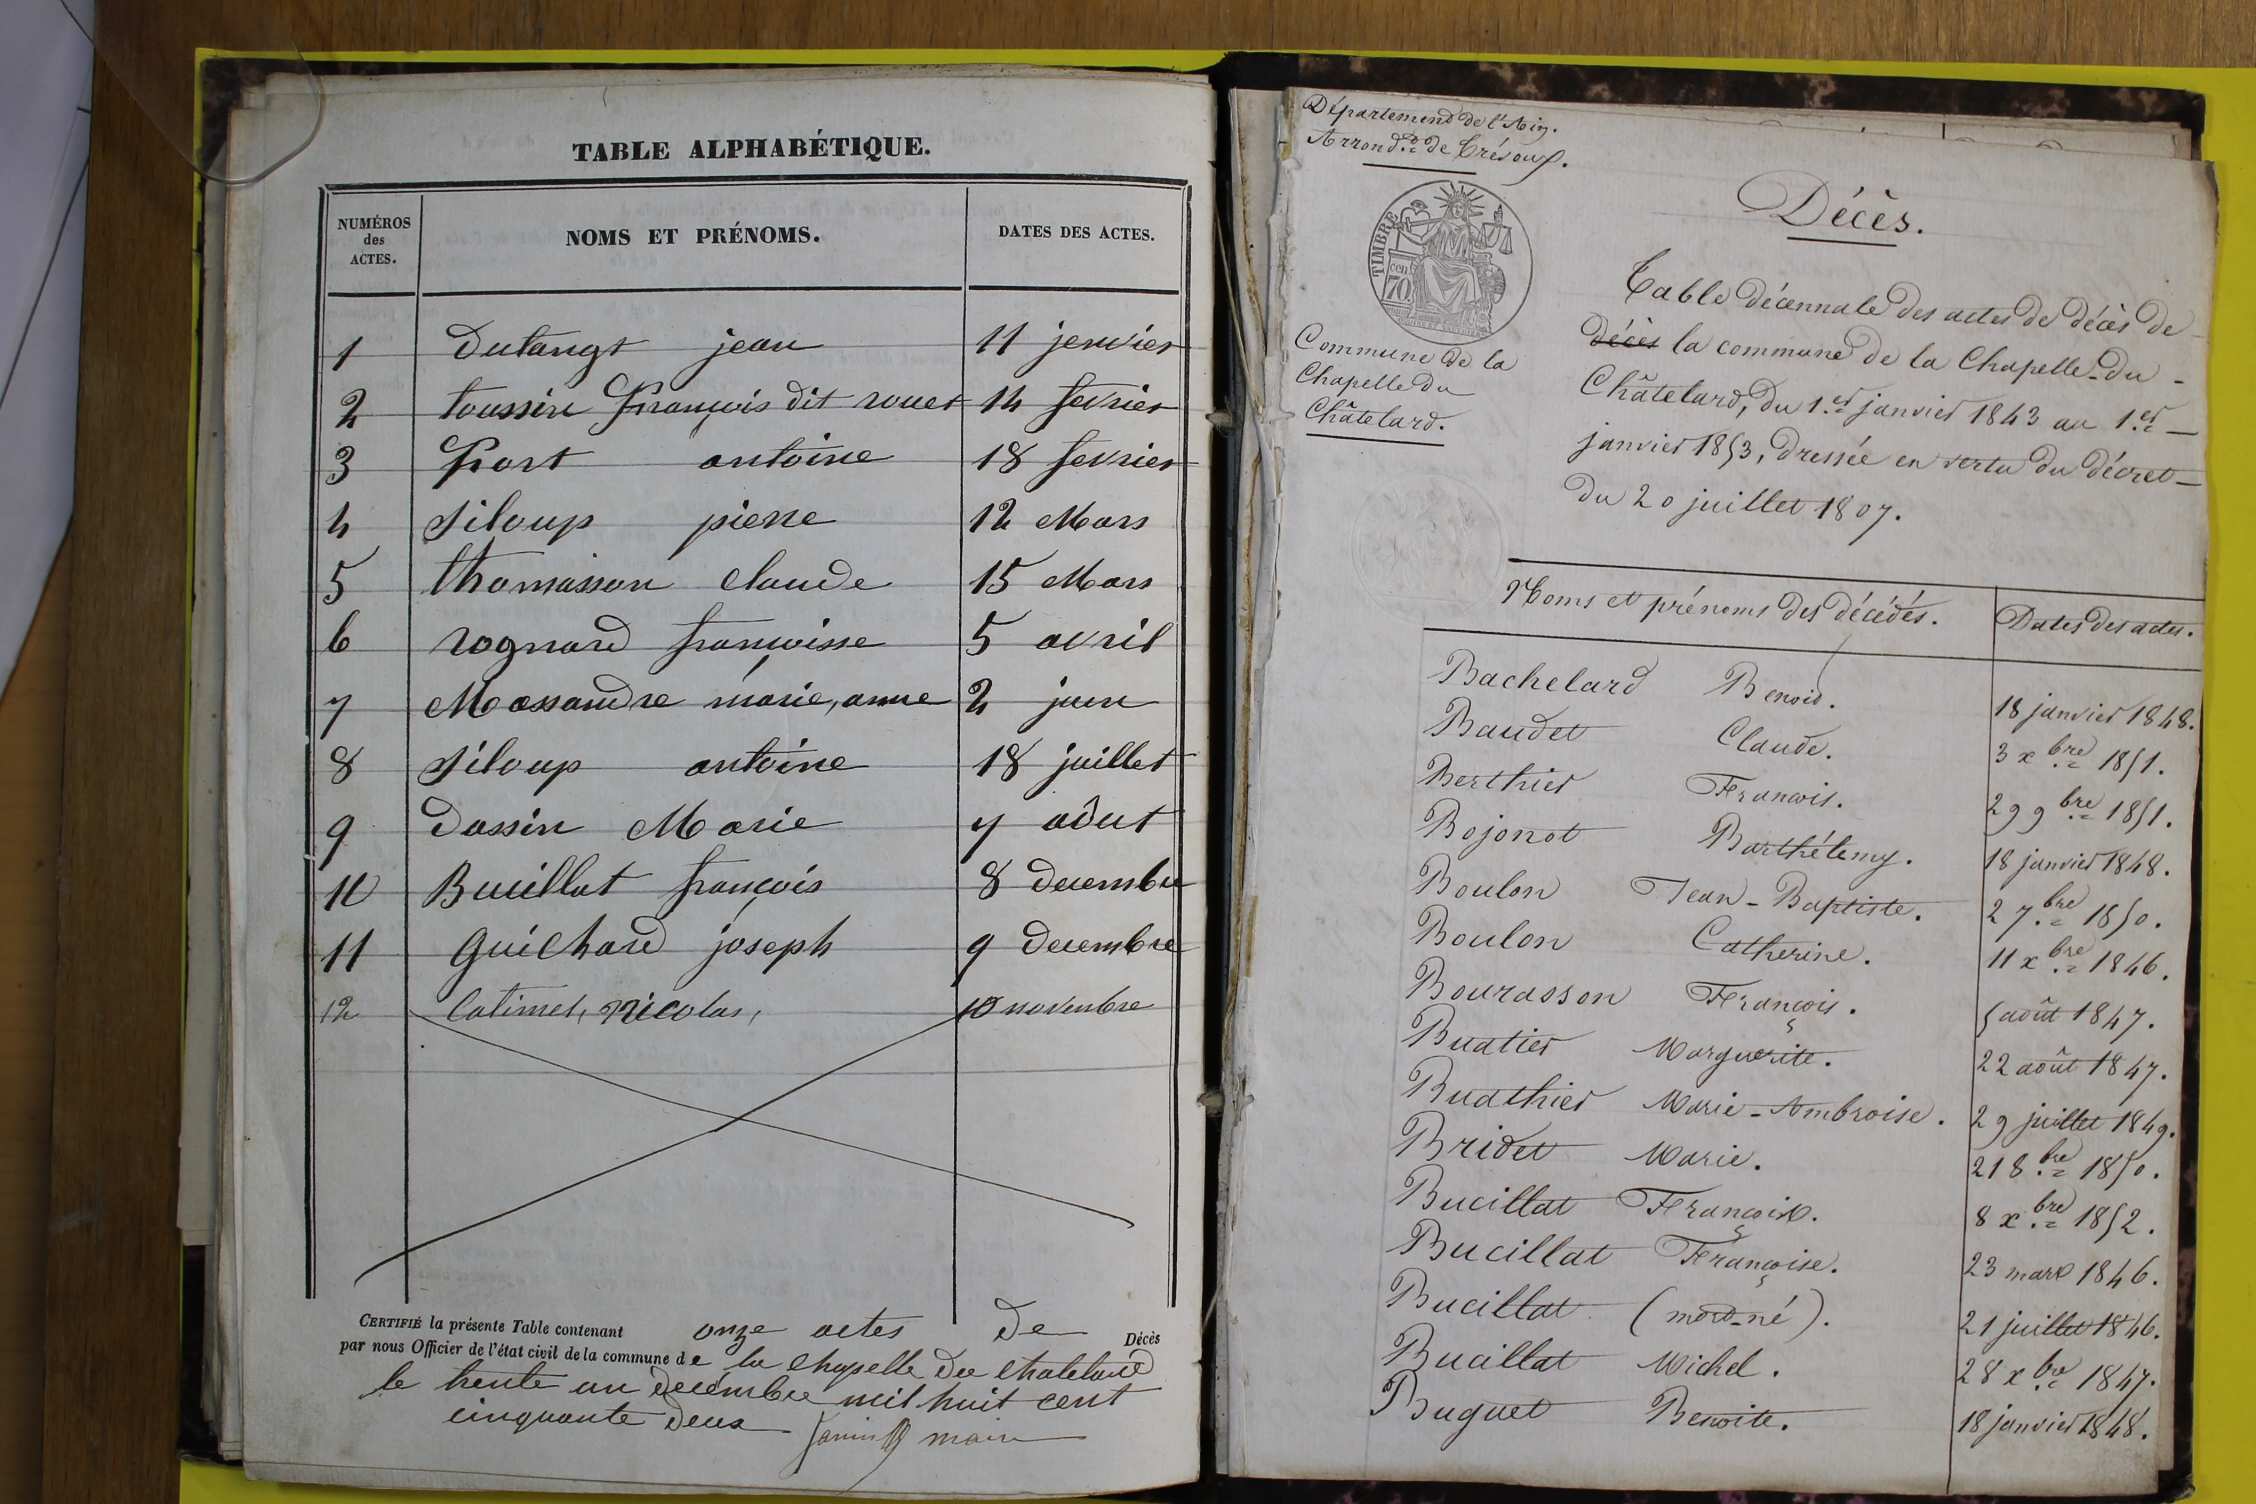 TABLE ALPHABÉTIQUE.
NUMÉROS
des
ACTES.
NOMS ET PRÉNOMS.
DATES DES ACTES.
1 Dutangt jean 11 jenvier
2 toussin françois dit rouet 14 fevrier
3 fort antoine 18 fevrier
4 Siloup pierre 12 Mars
5 thomasson Claude 15 Mars
6 rognard françoisse 5 avril
7 Massandre marie, anne 2 juin
8 Siloup antoine 18 juillet
9 dassin Marie 7 aôut
10 Bucillat françois 8 decembre
11 Guichard joseph 9 decembre
12 Catimel, Nicolas, 10 novembre
CERTIFIÉ la présente Table contenant onze actes de Décès
par nous Officier de l'état civil de la commune de la Chapelle du Chatelard
le trente un decembre mil huit cent
cinquante deux
Janin maire
Département de l'Ain.
Arrond.t de Trévoux.
TIMBRE
70 cen
Commune de la
Chapelle du
Châtelard.
Décès.
Table décennale des actes de décès de
décès la commune de la Chapelle-du-
Châtelard, du 1.er janvier 1843 au 1.er
janvier 1853, dressée en vertu du décret
du 20 juillet 1807.
Noms et prénoms des décédés. Dates des actes.
Bachelard Benoit. 18 janvier 1848.
Baudet Claude. 3 x.bre 1851.
Berthier François. 29 9.bre 1851.
Bojonot Barthélemy. 18 janvier 1848.
Boulon Jean-Baptiste. 2 7.bre 1850.
Boulon Catherine. 11 x.bre 1846.
Bourasson François. 5 août 1847.
Buatier Marguerite. 22 août 1847.
Buathier Marie-Ambroise. 29 juillet 1849.
Bridet Marie. 21 8.bre 1850.
Bucillat François. 8 x.bre 1852.
Bucillat Françoise. 23 mars 1846.
Bucillat (mort-né). 21 juillet 1846.
Bucillat Michel. 28 x.bre 1847.
Buguet Benoite. 18 janvier 1848.